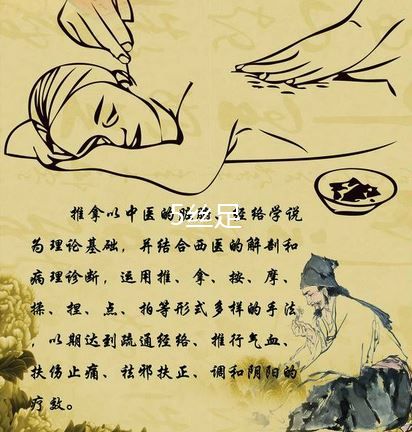 推拿以中医的脏腑、经络学说
为理论基础，并结合西医的解剖和
病理诊断，运用推、拿、按、摩、
揉、捏、点、拍等形式多样的手法
，以期达到疏通经络、推行气血、
扶伤止痛、祛邪扶正、调和阴阳的
疗效。
5丝足